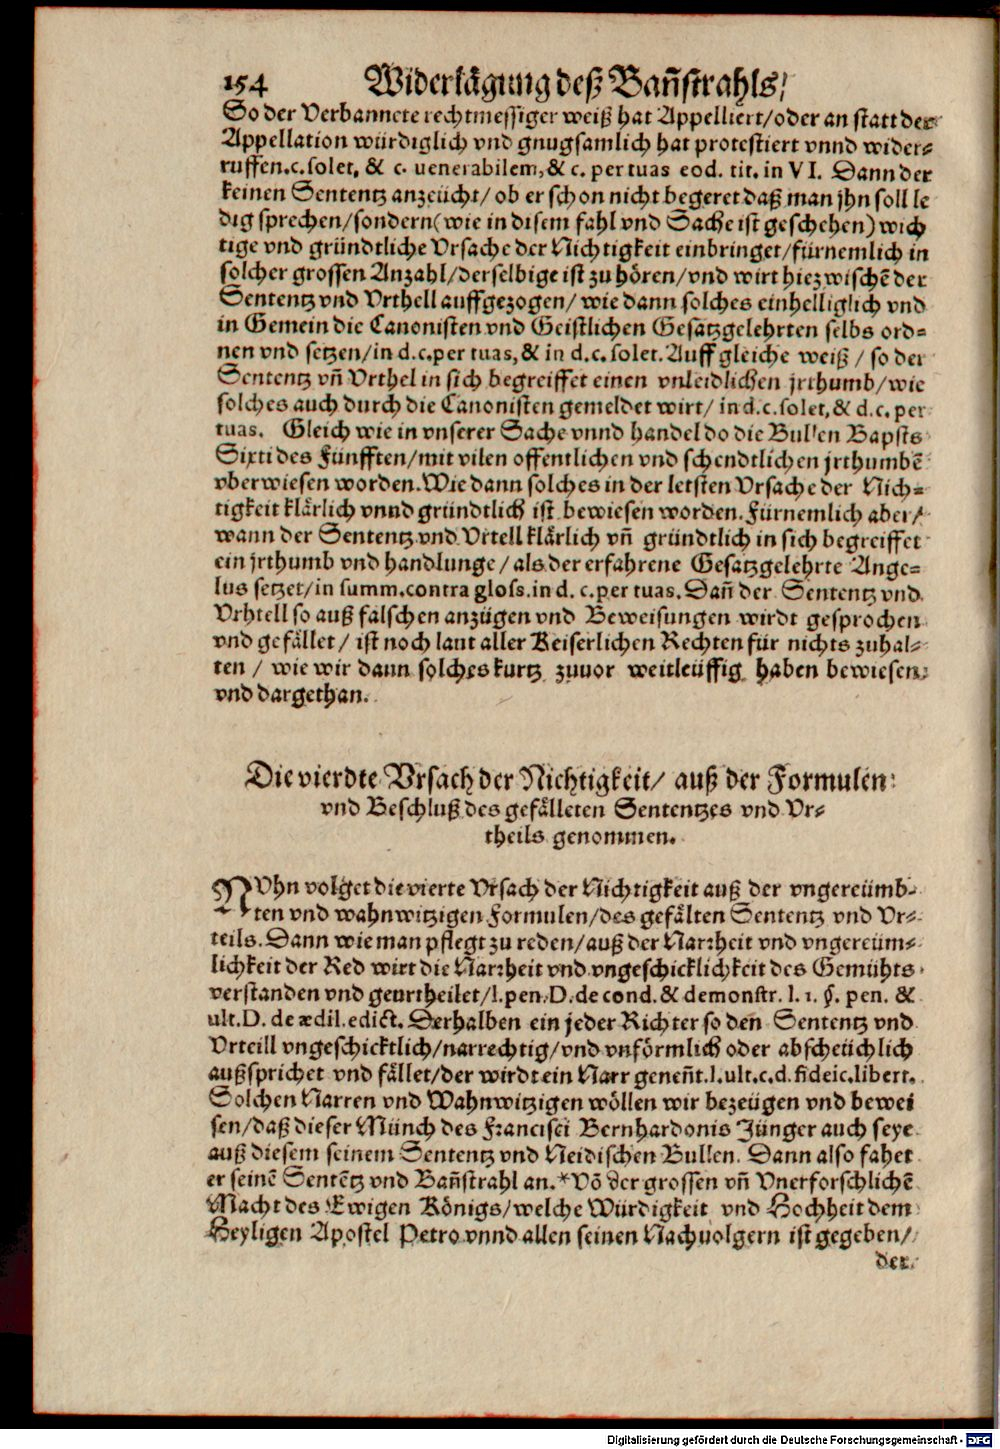 154 Widerlägung deß Bañstrahls/
So der Verbannete rechtmessiger weiß hat Appelliert/oder an statt der
Appellation würdiglich vnd gnugsamlich hat protestiert vnnd wider-
ruffen.c.solet, & c. uenerabilem, & c. per tuas eod. tit. in VI. Dann der
keinen Sententz anzeücht/ ob er schon nicht begeret daß man jhn soll le
dig sprechen/sondern(wie in disem fahl vnd Sache ist geschehen) wich
tige vnd gründtliche Vrsache der Nichtigkeit einbringet/fürnemlich in
solcher grossen Anzahl/derselbige ist zu hören/vnd wirt hiezwischē der
Sententz vnd Vrthell auffgezogen/ wie dann solches einhelliglich vnd
in Gemein die Canonisten vnd Geistlichen Gesatzgelehrten selbs ord-
nen vnd setzen/in d.c.per tuas, & in d.c. solet. Auff gleiche weiß / so der
Sententz vñ Vrthel in sich begreiffet einen vnleidlichen jrthumb/wie
solches auch durch die Canonisten gemeldet wirt/ in d.c.solet, & d.c. per
tuas. Gleich wie in vnserer Sache vnnd handel do die Bullen Bapsts
Sixti des Fünfften/mit vilen offentlichen vnd schendtlichen jrthumbē
vberwiesen worden.Wie dann solches in der letsten Vrsache der Nich-
tigkeit klärlich vnnd gründtlich ist bewiesen worden. Fürnemlich aber/
wann der Sententz vnd Vrtell klärlich vñ gründtlich in sich begreiffet
ein jrthumb vnd handlunge / als der erfahrene Gesatzgelehrte Ange-
lus setzet/in summ.contra gloss.in d. c.per tuas. Dañ der Sententz vnd
Vrhtell so auß falschen anzügen vnd Beweisungen wirdt gesprochen
vnd gefället / ist noch laut aller Keiserlichen Rechten für nichts zuhal-
ten / wie wir dann solches kurtz zuuor weitleüffig haben bewiesen
vnd dargethan.
Die vierdte Vrsach der Nichtigkeit/ auß der Formulen
vnd Beschluß des gefälleten Sententzes vnd Vr-
theils genommen.
NVhn volget die vierte Vrsach der Nichtigkeit auß der vngereümb-
ten vnd wahnwitzigen Formulen/des gefälten Sententz vnd Vr-
teils. Dann wie man pflegt zu reden/auß der Narrheit vnd vngereüm-
lichkeit der Red wirt die Narrheit vnd vngeschicklichkeit des Gemühts
verstanden vnd geurtheilet/l.pen.D.de cond. & demonstr. l. 1. §. pen. &
ult.D. de ædil.edict. Derhalben ein jeder Richter so den Sententz vnd
Vrteill vngeschicktlich/narrechtig/vnd vnförmlich oder abscheüchlich
außsprichet vnd fället/der wirdt ein Narr geneñt.l.ult.c.d.fideic.libert.
Solchen Narren vnd Wahnwitzigen wöllen wir bezeügen vnd bewei
sen/daß dieser Münch des Francisci Bernhardonis Jünger auch seye
auß diesem seinem Sententz vnd Neidischen Bullen. Dann also fahet
er seinē Sentētz vnd Bañstrahl an.*Vō der grossen vñ Vnerforschlichē
Macht des Ewigen Königs/welche Würdigkeit vnd Hochheit dem
Heyligen Apostel Petro vnnd allen seinen Nachuolgern ist gegeben/
der
Digitalisierung gefördert durch die Deutsche Forschungsgemeinschaft - DFG